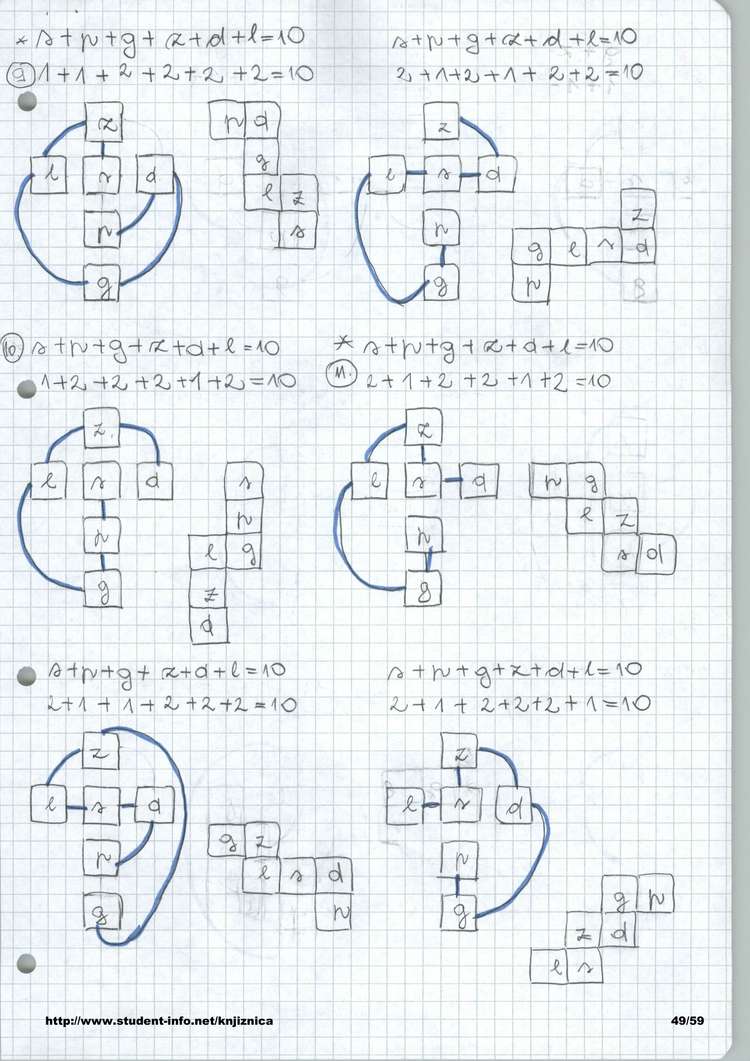 * s+p+g+z+d+l=10
9 1+1+2+2+2+2=10
z
l s d
p
g
p d
g
l z
s
s+p+g+z+d+l=10
2+1+2+1+2+2=10
z
l s d
p
g
z
g l s d
p
10 s+p+g+z+d+l=10
1+2+2+2+1+2=10
z
l s d
p
g
s
p
l g
z
d
* s+p+g+z+d+l=10
11. 2+1+2+2+1+2=10
z
l s d
p
g
p g
l z
s d
s+p+g+z+d+l=10
2+1+1+2+2+2=10
z
l s d
p
g
g z
l s d
p
s+p+g+z+d+l=10
2+1+2+2+2+1=10
z
l s d
p
g
g p
z d
l s
http://www.student-info.net/knjiznica 49/59